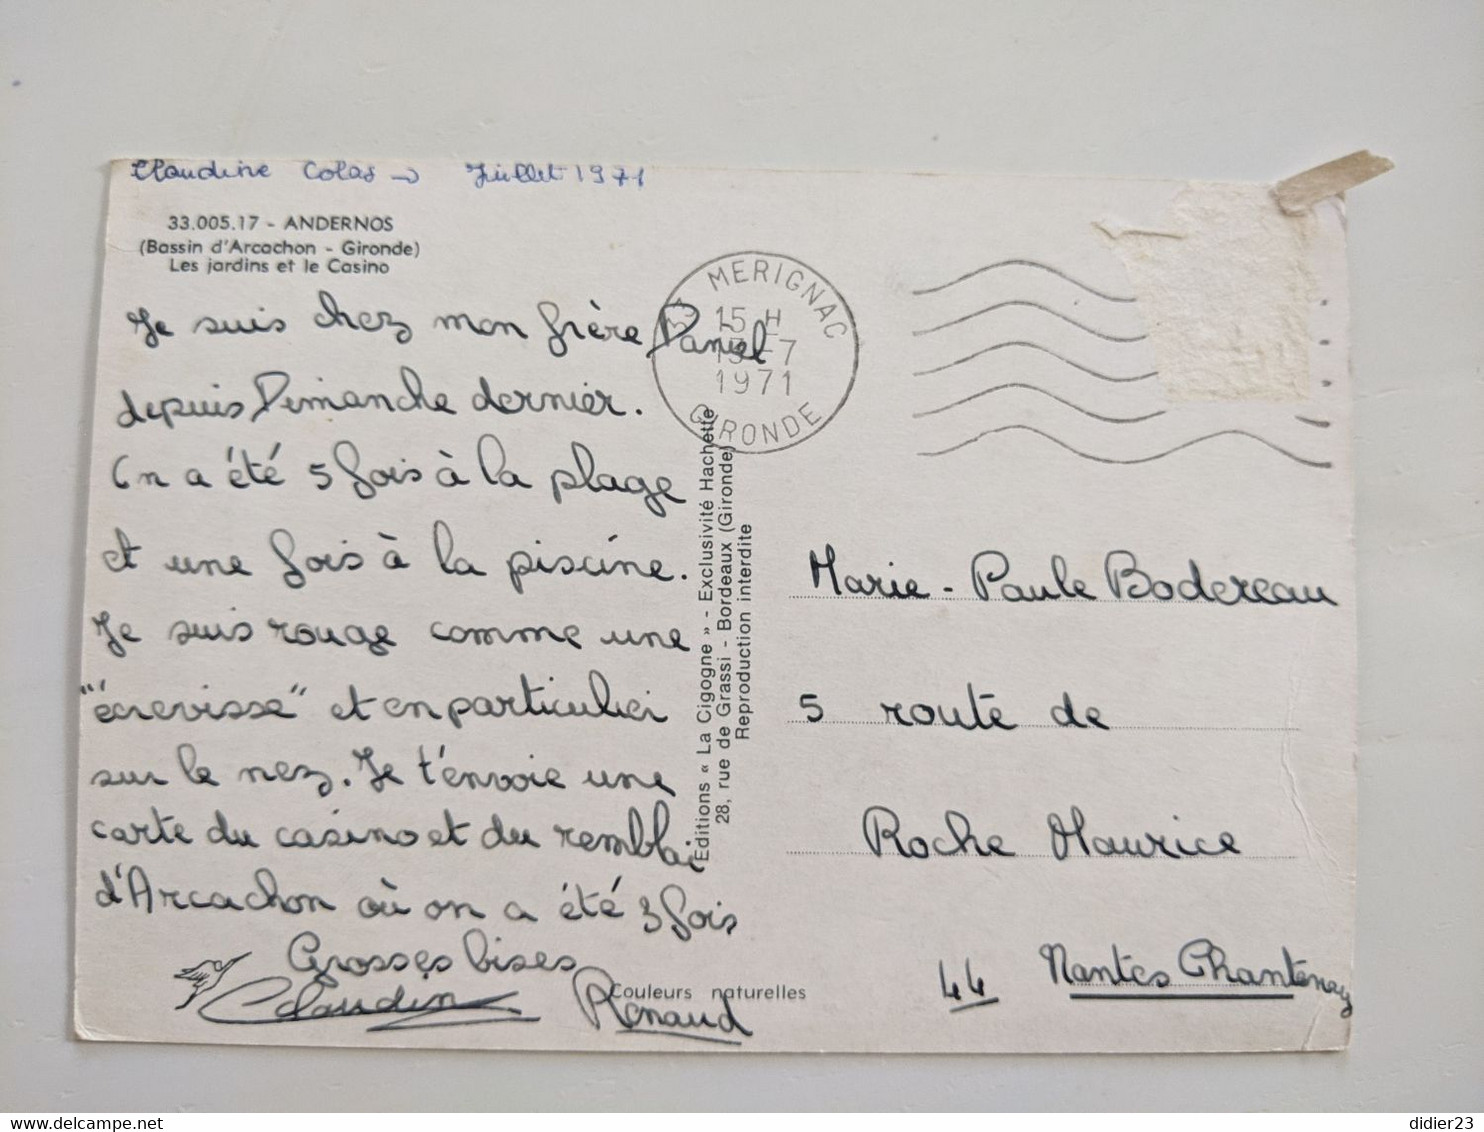 Claudine Colas → Juillet 1971
33.005.17 - ANDERNOS
(Bassin d'Arcachon - Gironde)
Les jardins et le Casino
Je suis chez mon frère Daniel
depuis Dimanche dernier.
On a été 5 fois à la plage
et une fois à la piscine.
Je suis rouge comme une
"écrevisse" et en particulier
sur le nez. Je t'envoie une
carte du casino et du remblai
d'Arcachon où on a été 3 fois
Grosses bises
Claudine
Renaud
Couleurs naturelles
Editions « La Cigogne » - Exclusivité Hachette
28, rue de Grassi - Bordeaux (Gironde)
Reproduction interdite
33 MERIGNAC
15 H
15-7
1971
GIRONDE
Marie-Paule Bodereau
5 route de
Roche Maurice
44 Nantes Chantenay
didier23